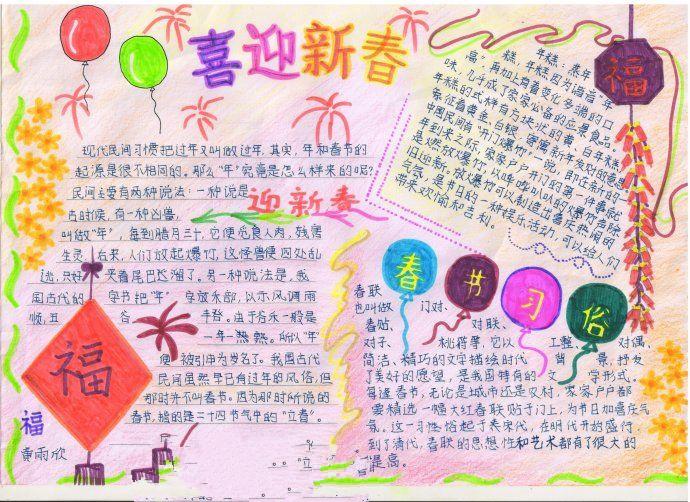 喜迎新春
现代民间习惯把过年又叫做过年.其实,年和春节的
起源是很不相同的。那么"年"究竟是怎么样来的呢?
民间主要有两种说法:一种说是
古时候,有一种凶兽,
叫做"年",每到腊月三十,它便觅食人肉,残害
生灵。后来,人们放起爆竹,这怪兽便四处乱
逃,只好夹着尾巴逃溜了。另一种说法是,我
国古代的字书把"年"字放禾部,以示风调雨
顺,五谷丰登。由于谷禾一般是
一年一熟。所以"年"
便被引申为岁名了。我国古代
民间虽然早已有过年的风俗,但
那时并不叫春节。因为那时所说的
春节,指的是二十四节气中的"立春"。
迎新春
福
福
黄雨欣
年糕:蒸年
糕,年糕因为谐音"年
高",再加上有着变化多端的口
味,几乎成了家家必备的应景食品。
年糕的式样有方块状的黄、白年糕,
象征着黄金、白银,寄寓新年发财的意思。
中国民间有"开门爆竹"一说。即在新的一
年到来之际,家家户户开门的第一件事就
是燃放爆竹,以哔哔叭叭的爆竹声除
旧迎新。放爆竹可以制造出喜庆热闹的
气氛,是节日的一种娱乐活动,可以给人们
带来欢愉和吉利。
福
春节习俗
春联
也叫做门对、
春贴、对联、
对子、桃符等,它以工整、对偶、
简洁、精巧的文字描绘时代背景,抒发
了美好的愿望,是我国特有的文学形式。
每逢春节,无论是城市还是农村,家家户户都
要精选一幅大红春联贴于门上,为节日加喜庆气
氛。这一习俗起于宋代,在明代开始盛行,
到了清代,春联的思想性和艺术都有了很大的
提高。